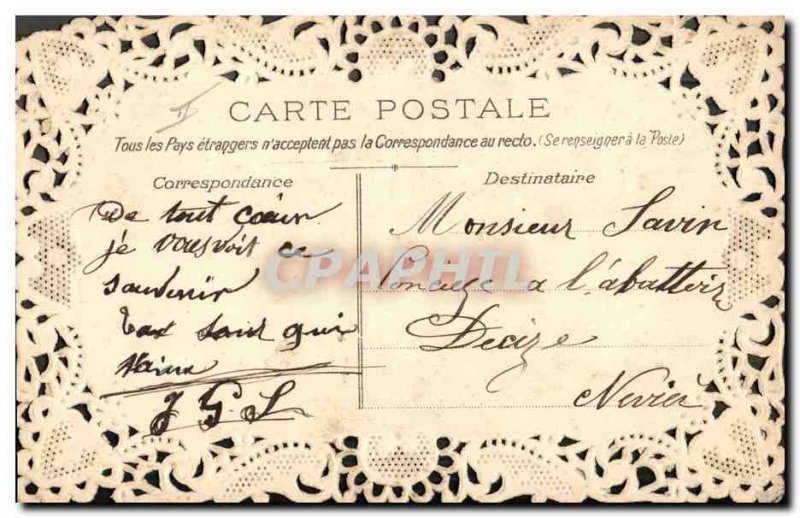 CARTE POSTALE
Tous les Pays étrangers n'acceptent pas la Correspondance au recto. (Se renseigner à la Poste)
Correspondance
De tout cœur
je vous voit ce
souvenir
sont qui
J G. S
Destinataire
Monsieur Savin
Concierge a l'abattoir
Decize
Nevier
CPAPHIL